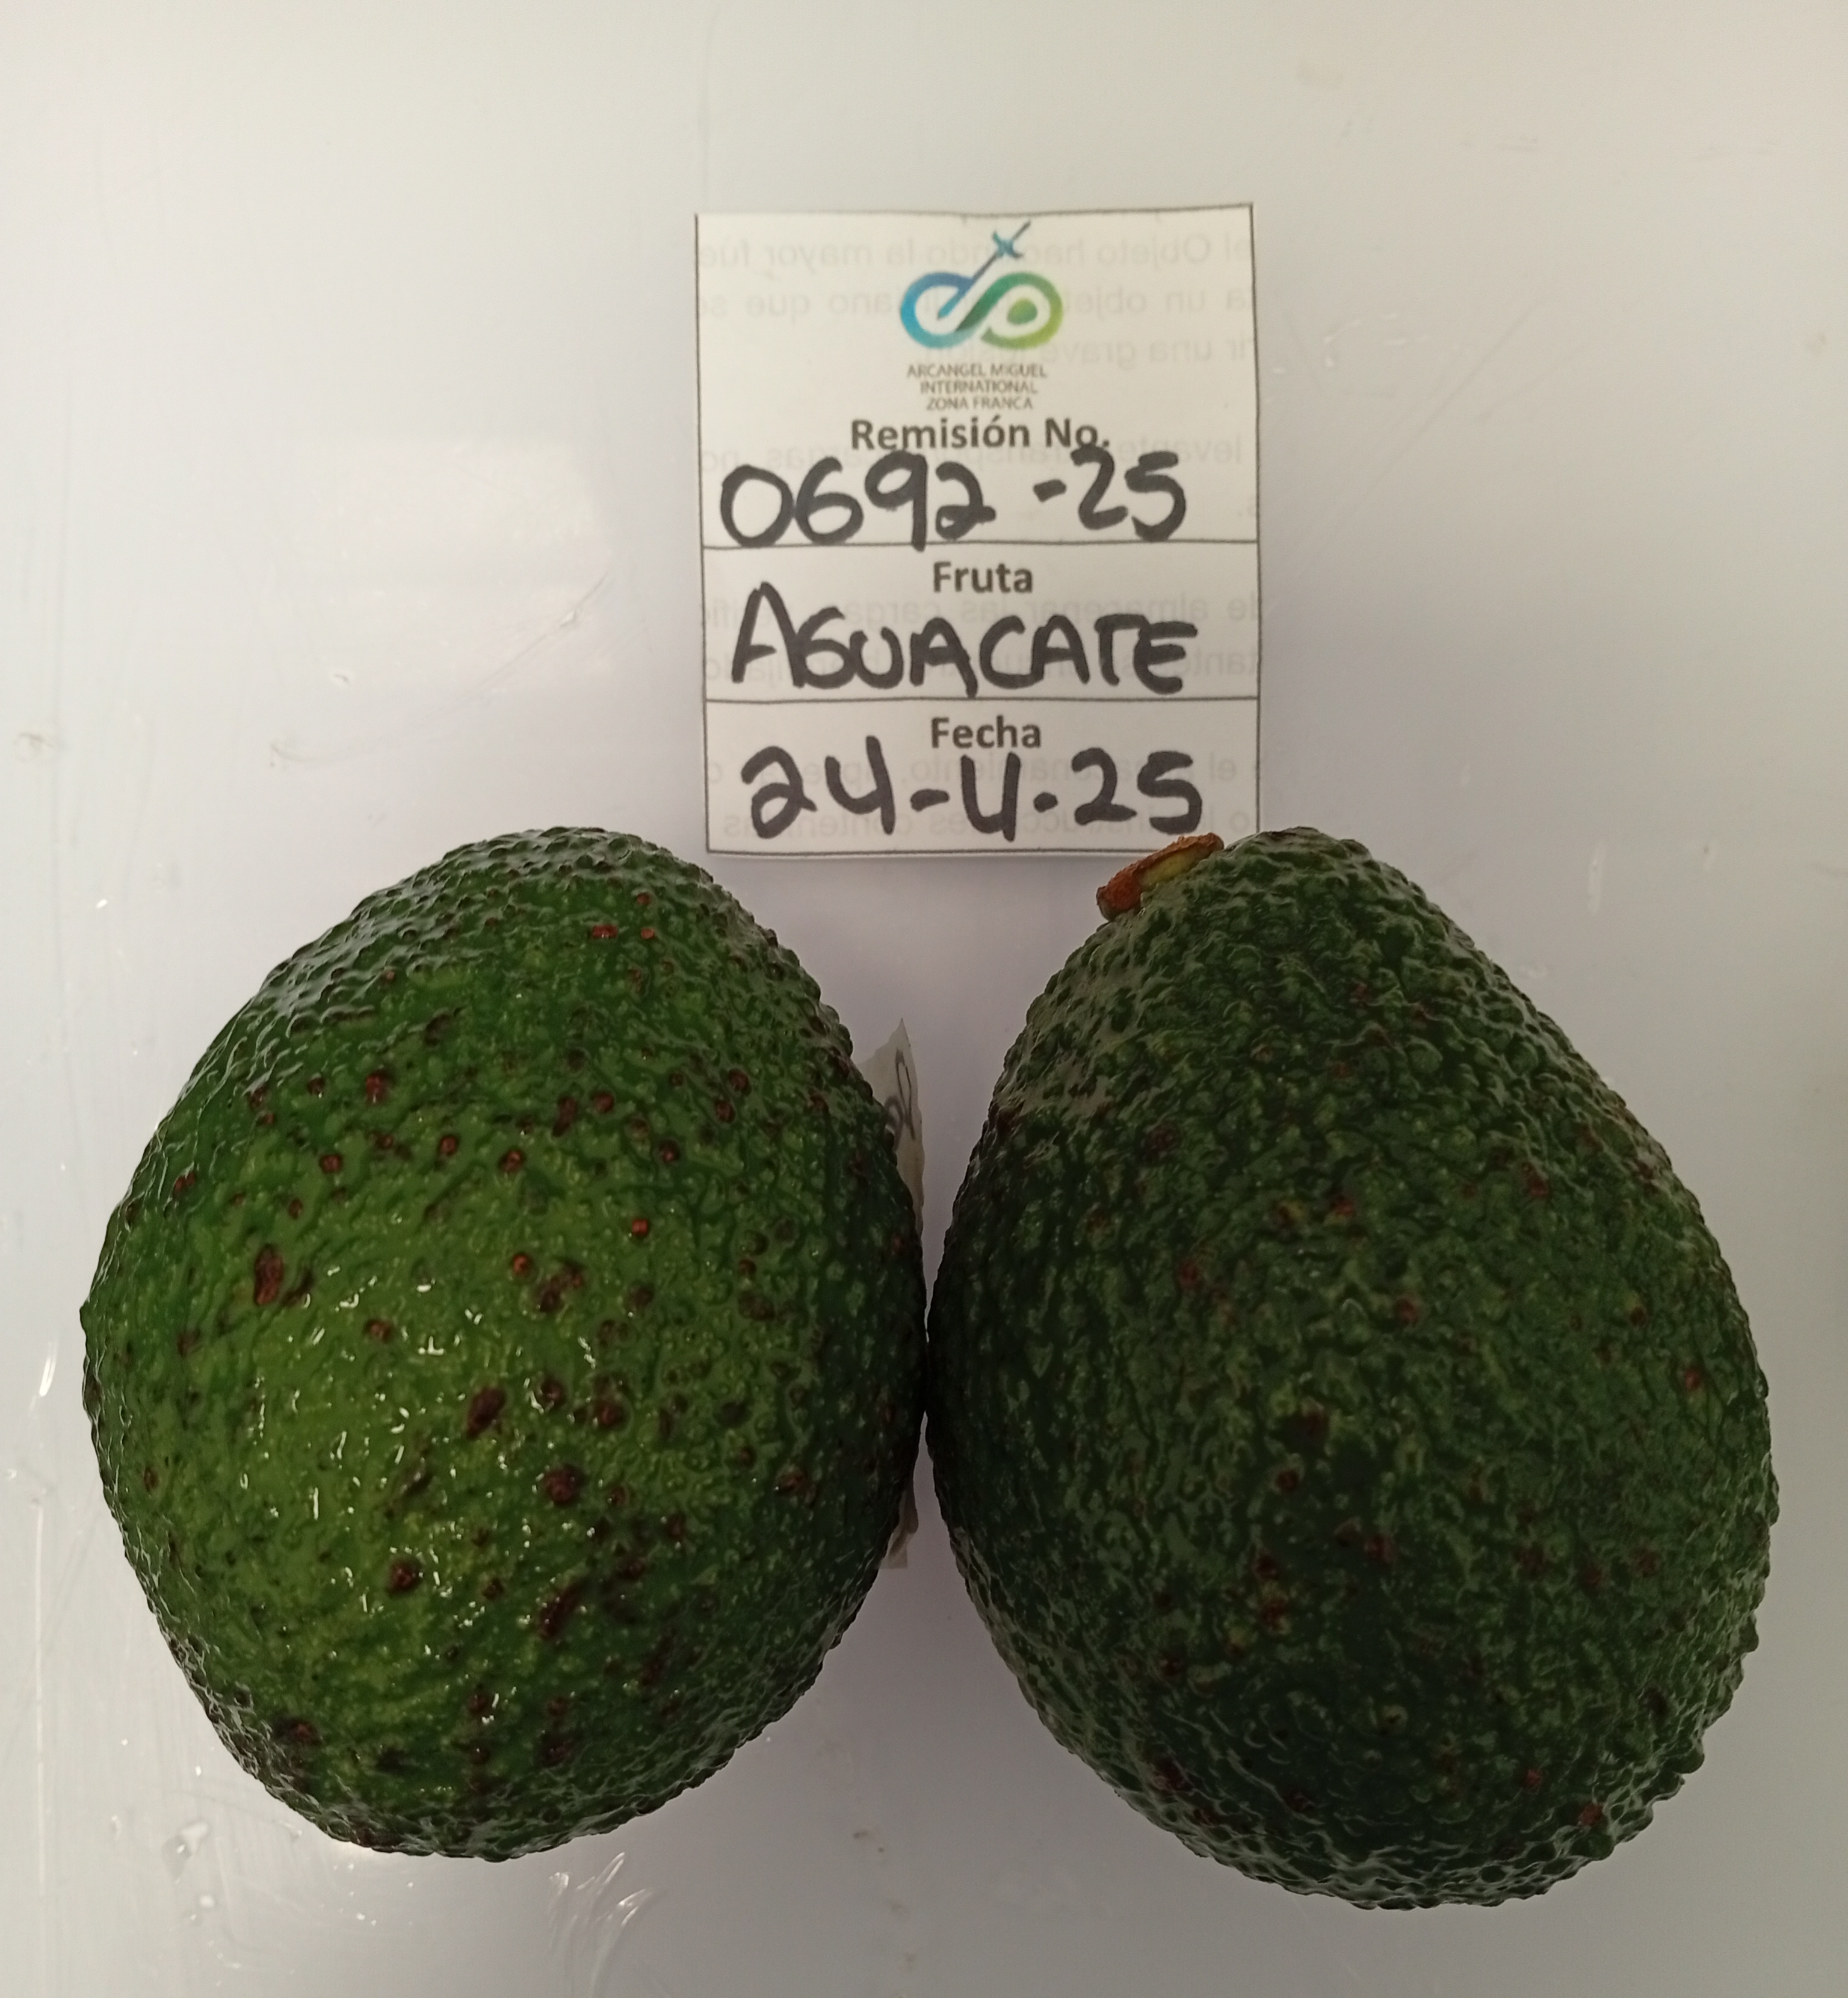 ARCANGEL MIGUEL
INTERNATIONAL
ZONA FRANCA
Remisión No.
0692-25
Fruta
AGUACATE
Fecha
24-4-25